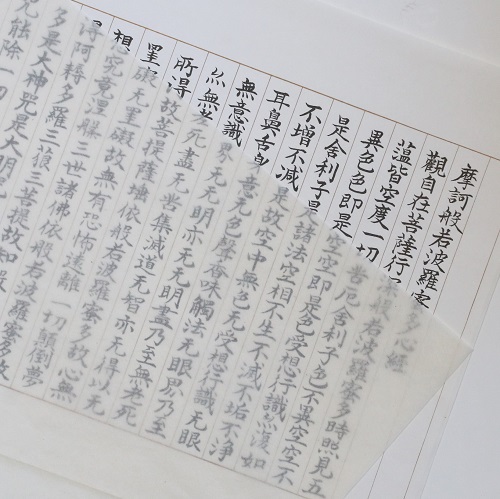 摩訶般若波羅蜜多心經
觀自在菩薩行深般若波羅蜜多時照見五
蘊皆空度一切苦厄舍利子色不異空空不
異色色即是空空即是色受想行識亦復如
是舍利子是諸法空相不生不滅不垢不淨
不增不減是故空中無色无受想行識无眼
耳鼻舌身意无色聲香味觸法无眼界乃至
無意識界无无明亦无无明盡乃至無老死
亦無老死盡无苦集滅道无智亦无得以无
所得故菩提薩埵依般若波羅蜜多故心無
罣礙无罣礙故無有恐怖遠離一切顛倒夢
想究竟涅槃三世諸佛依般若波羅蜜多故
得阿耨多羅三藐三菩提故知般
多是大神咒是大明
咒能除一切